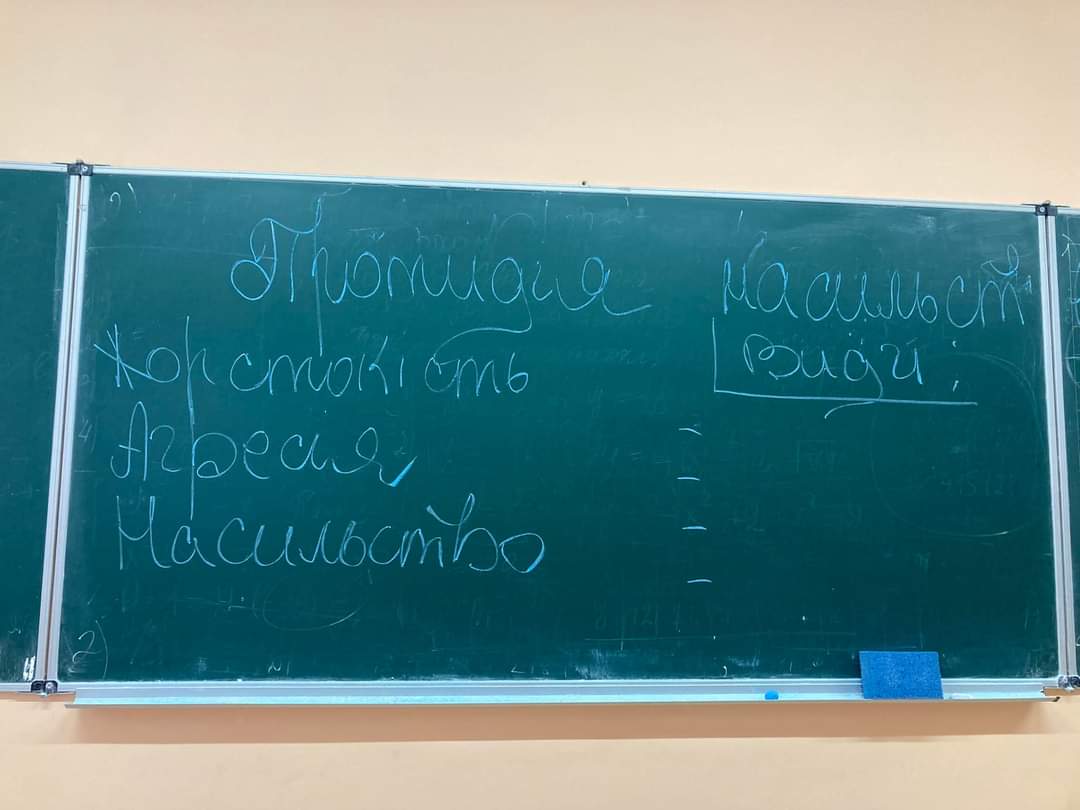 Протидія насильст
Види:
Жорстокість
Агресія
Насильство